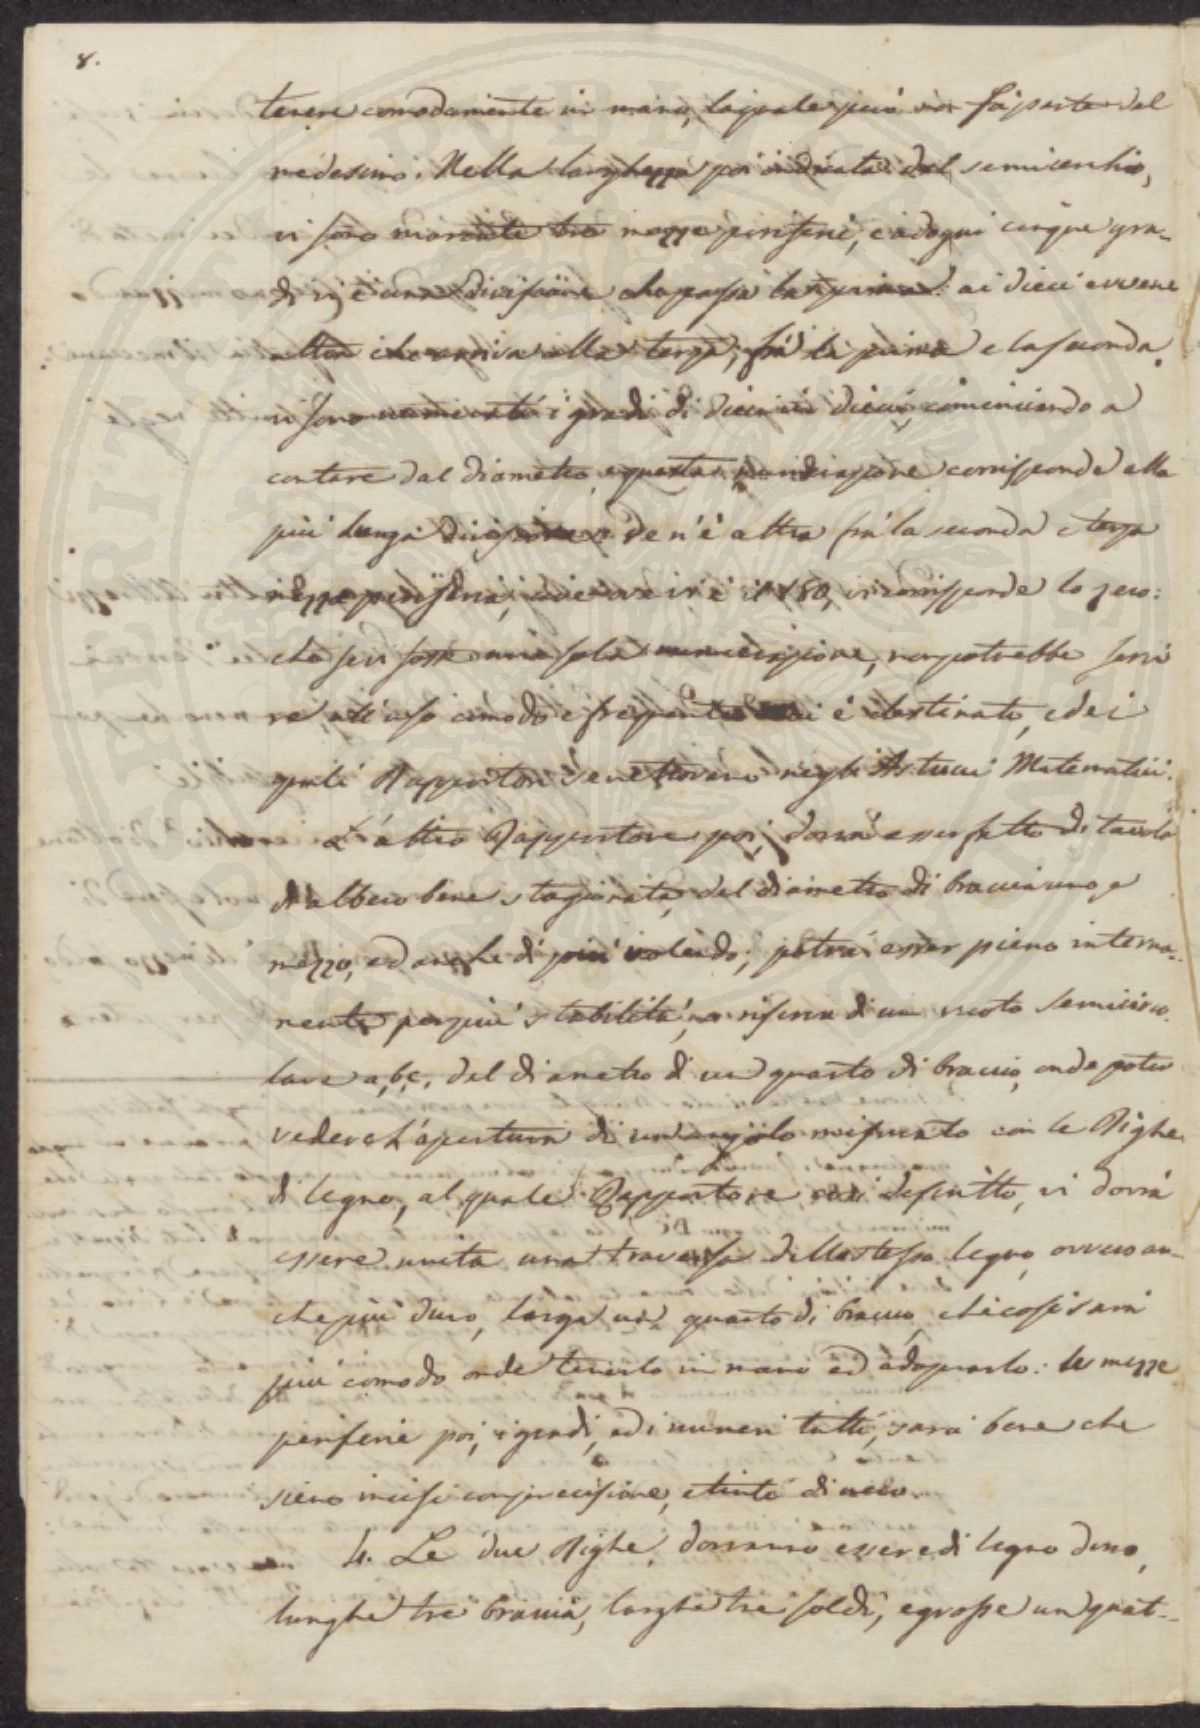 8.
tenere comodamente in mano, laquale però non fà parte del
medesimo. Nella larghezza poi indicata del semicerchio,
vi sono marcate tre mezze periferie, e ad ogni cinque gra-
di vi è una divisione che passa la prima: ai dieci avvene
altra che arriva alla terza; frà la prima e la seconda
vi sono numerati i gradi di dieci in dieci, cominciando a
contare dal diametro, e questa numerazione corrisponde alla
più lunga divisione: ve n'è altra frà la seconda e terza
mezza periferia, cioè ove vi è il 180, vi corrisponde lo zero:
che se vi fosse una sola numerazione, non potrebbe servi
re all'uso comodo e frequente cui è destinato, e dei
quali Rapportori se ne trovano negli Astucci Matematici.
L'altro Rapportore poi, dovrà esser fatto di tavola
di albero bene stagionata, del diametro di braccia uno e
mezzo, ed anche di più volendo; potrà esser pieno interna-
mente per più stabilità, a riserva di un vuoto semicirco-
lare a,b,c, del diametro di un quarto di braccio, onde poter
vedere l'apertura di un angolo misurato con le Righe
di legno, al quale Rapportore, così descritto, vi dovrà
essere unita una traversa dello stesso legno, ovvero an-
che più duro, larga un quarto di braccio, che così sarà
più comodo onde tenerlo in mano ed adoprarlo: le mezze
periferie poi, i gradi, ed i numeri tutti, sarà bene che
sieno incisi con precisione, e tinti di nero.
4. Le due Righe, dovranno essere di legno duro,
lunghe tre braccia, larghe tre soldi, e grosse un quat-